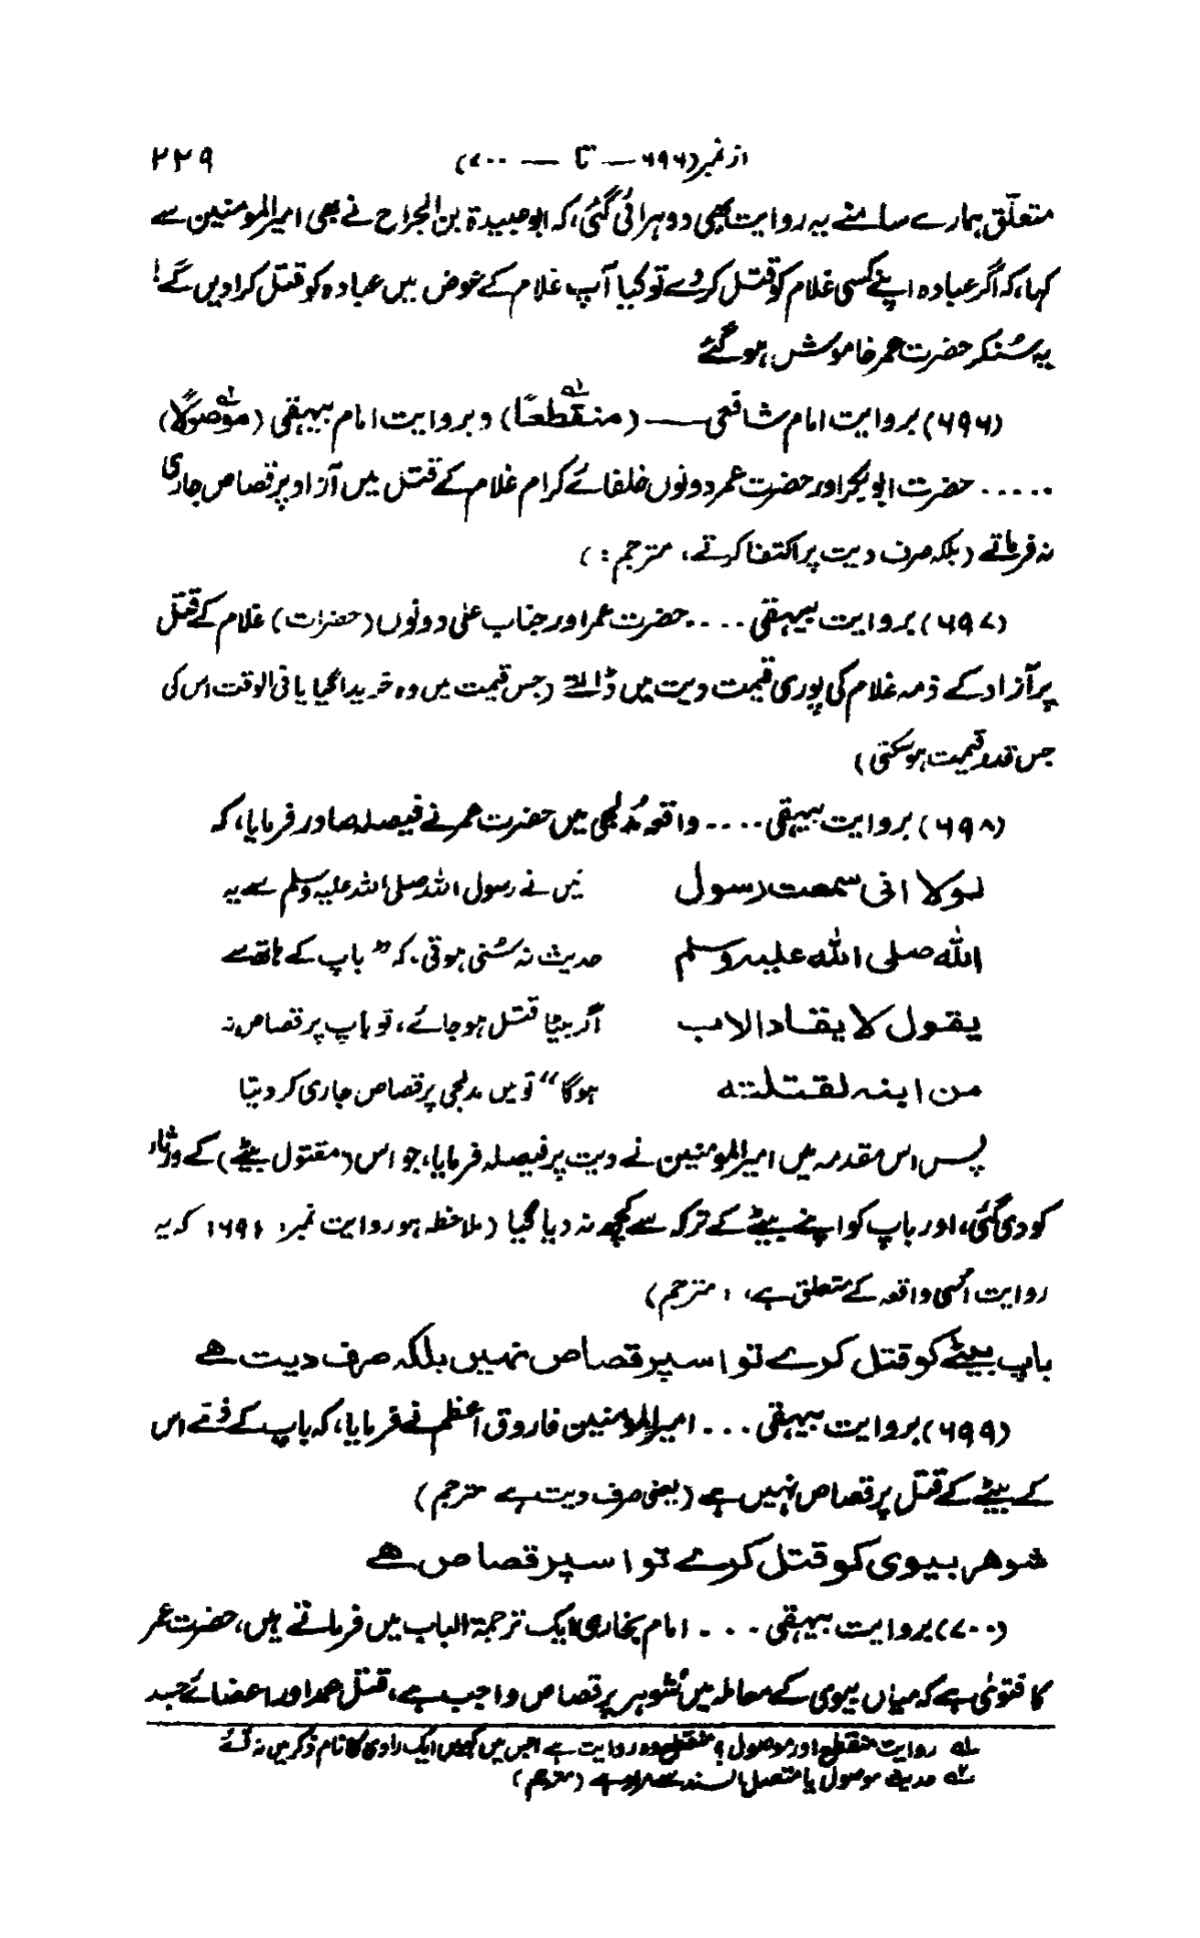 از نمبر (۶۹۶ — تا — ۷۰۰) ۲۲۹
متعلّق ہمارے سامنے یہ روایت بھی دوہرائی گئی، کہ ابوعبیدۃ بن الجراح نے بھی امیرالمومنین سے
کہا، کہ اگر عبادہ اپنے کسی غلام کو قتل کردے تو کیا آپ غلام کے عوض میں عبادہ کو قتل کرادیں گے!
یہ سُنکر حضرت عمر خاموش ہو گئے
(۶۹۶) بروایت امام شافعی —— (منقطعاً)۱؎ و بروایت امام بیہقی (موصولاً)۲؎
..... حضرت ابوبکر اور حضرت عمر دونوں خلفائے کرام غلام کے قتل میں آزاد پر قصاص جاری
نہ فرماتے (بلکہ صرف دیت پر اکتفا کرتے، مترجم :)
(۶۹۷) بروایت بیہقی .... حضرت عمر اور جناب علی دونوں (حضرات) غلام کے قتل
پر آزاد کے ذمہ غلام کی پوری قیمت دیت میں ڈالتے (جس قیمت میں وہ خریدا گیا یا فی الوقت اس کی
جس قدر قیمت ہو سکتی)
(۶۹۸) بروایت بیہقی .... واقعہ مُدلجی میں حضرت عمر نے فیصلہ صادر فرمایا، کہ
لولا انی سمعت رسول میں نے رسول اللہ صلی اللہ علیہ وسلم سے یہ
اللہ صلی اللہ علیہ وسلم حدیث نہ سُنی ہوتی۔ کہ ”باپ کے ہاتھ سے
یقول لا یقاد الاب اگر بیٹا قتل ہو جائے، تو باپ پر قصاص نہ
من ابنہ لقتلتہ ہوگا“ تو میں مدلجی پر قصاص جاری کر دیتا
پس اس مقدمہ میں امیرالمومنین نے دیت پر فیصلہ فرمایا، جو اس (مقتول بیٹے) کے ورثاء
کو دی گئی، اور باپ کو اپنے بیٹے کے ترکہ سے کچھ نہ دیا گیا (ملاحظہ ہو روایت نمبر: ۶۹۱: کہ یہ
روایت اسی واقعہ کے متعلق ہے، : مترجم)
باپ بیٹے کو قتل کرے تو اسپر قصاص نہیں بلکہ صرف دیت ہے
(۶۹۹) بروایت بیہقی ... امیرالمومنین فاروق اعظم نے فرمایا، کہ باپ کے ذمّے اس
کے بیٹے کے قتل پر قصاص نہیں ہے (یعنی صرف دیت ہے مترجم)
شوھر بیوی کو قتل کرے تو اسپر قصاص ہے
(۷۰۰) بروایت بیہقی ... امام بخاری ایک ترجمۃ الباب میں فرماتے ہیں، حضرت عمر
کا فتویٰ ہے کہ میاں بیوی کے معاملہ میں شوہر پر قصاص واجب ہے، قتل عمد اور اعضائے جسد
۱؎ روایت منقطع اور موصول؟ منقطع وہ روایت ہے جس میں کہیں ایک راوی کا نام ذکر میں نہ آئے
۲؎ حدیث موصول یا متصل السند سے مراد ہے (مترجم)